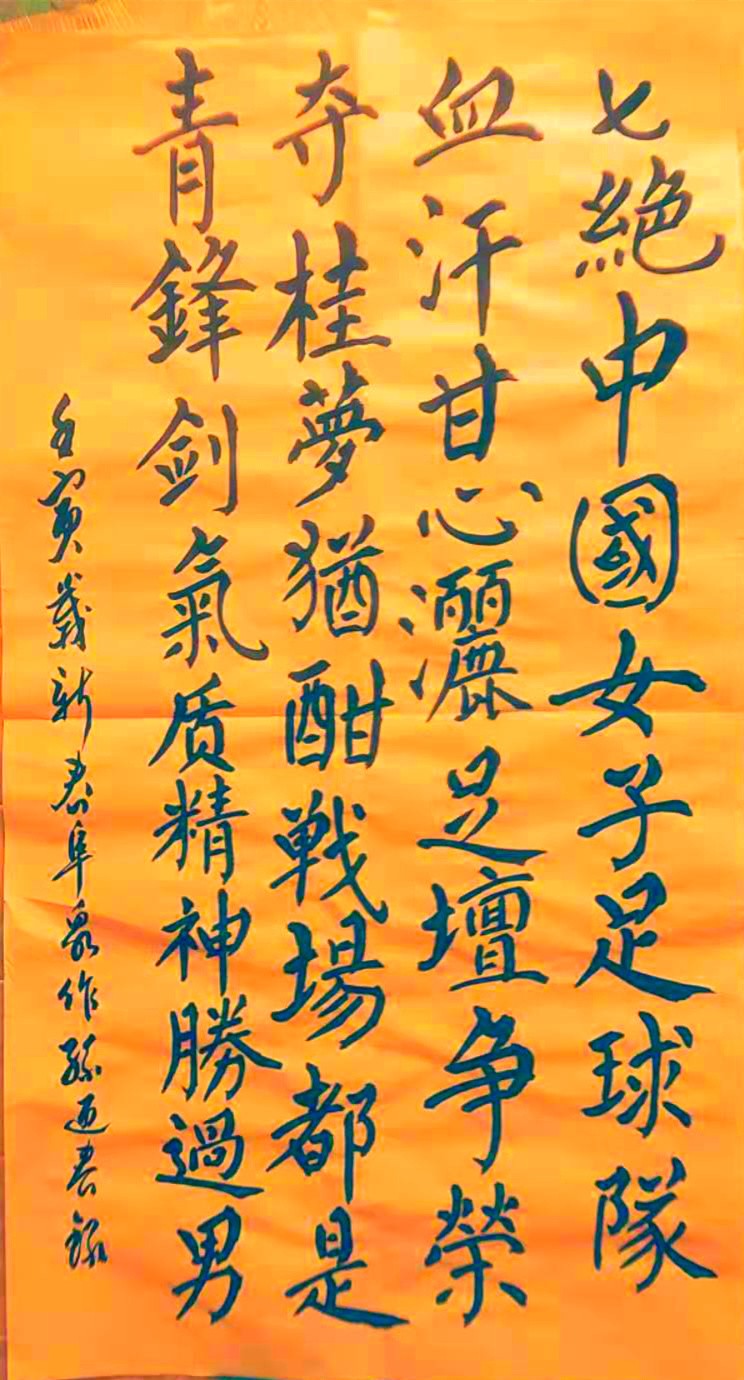 七絕中國女子足球隊
血汗甘心灑足壇争榮
夺桂夢猶酣戦場都是
青鋒剑氣质精神勝過男
壬寅歲新春阜泉作孫迅書錄